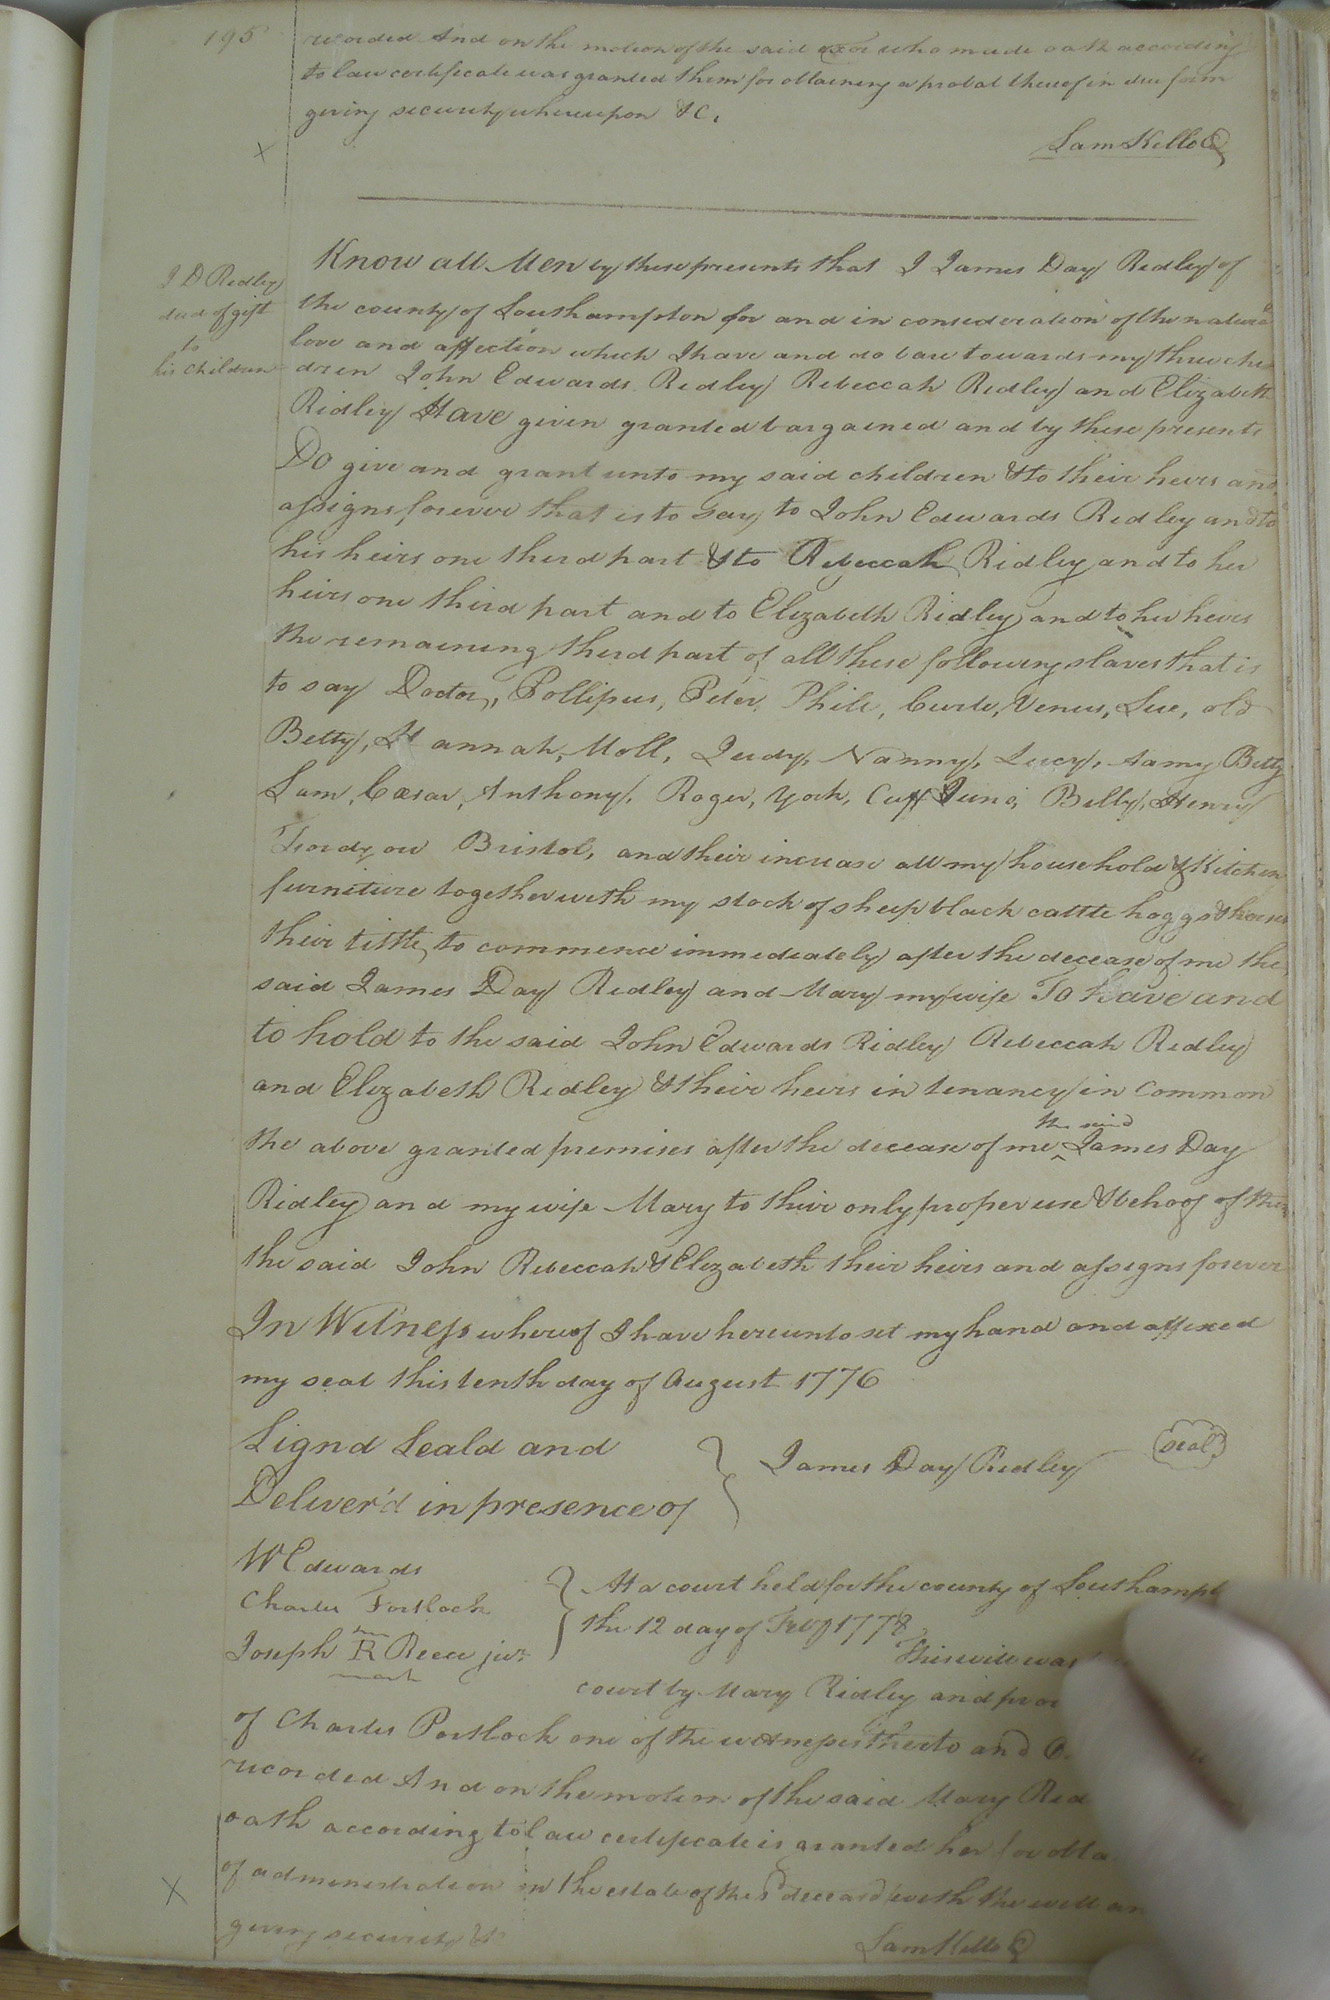 195
recorded And on the motion of the said exor who made oath according
to law certificate was granted them for obtaining a probat thereof in due form
giving security whereupon &c.
Sam Kello C
X
J D Ridley
deed of gift
to
his children
Know all Men by these presents that I James Day Ridley of
the county of Southampton for and in consideration of the natural
love and affection which I have and do bare towards my three chi
dren John Edwards Ridley Rebeccah Ridley and Elizabeth
Ridley Have given granted bargained and by these presents
Do give and grant unto my said children & to their heirs and
assigns forever that is to say to John Edwards Ridley and to
his heirs one third part & to Rebeccah Ridley and to her
heirs one third part and to Elizabeth Ridley and to her heirs
the remaining third part of all these following slaves that is
to say Doctor, Pollipus, Peter, Phill, Curle, Venus, Sue, old
Betty, Hannah, Moll, Judy, Nanny, Lucy, Aamy Betty
Sam, Cæsar, Anthony, Roger, York, Cuff Juno, Billy, Henry
Bristol, and their increase all my household & Kitchen
furniture together with my stock of sheep black cattle hoggs & horses
their tittle to commence immediately after the decease of me the
said James Day Ridley and Mary my wife To have and
to hold to the said John Edwards Ridley Rebeccah Ridley
and Elizabeth Ridley & their heirs in tenancy in common
the above granted premises after the decease of me ^ the said James Day
Ridley and my wife Mary to their only proper use & behoof of them
the said John Rebeccah & Elizabeth their heirs and assigns forever
In Witness whereof I have hereunto set my hand and affixed
my seal this tenth day of August 1776
Signd Seald and
Deliver'd in presence of
James Day Ridley
seal
W Edwards
Charles Portlock
Joseph R Reece junr
his
mark
At a court held for the county of Southampt
the 12 day of Feby 1778
This will was
court by Mary Ridley and pro
of Charles Portlock one of the witnesses thereto and
recorded And on the motion of the said Mary Rid
oath according to law certificate is granted her for obta
of administration on the estate of the sd decead with the will an
giving security &
Sam Kello C
X